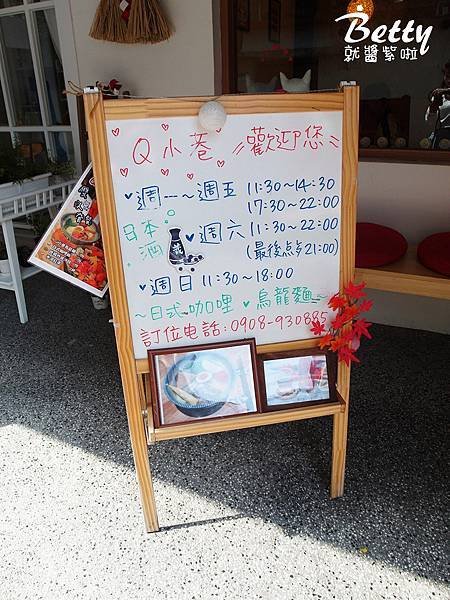 Betty
就醬紫啦
Q小巷 歡迎您
週一～週五 11:30～14:30
17:30～22:00
日本酒
週六 11:30～22:00
(最後点餐21:00)
週日 11:30～18:00
～日式咖哩 烏龍麵～
訂位电話:0908-930885